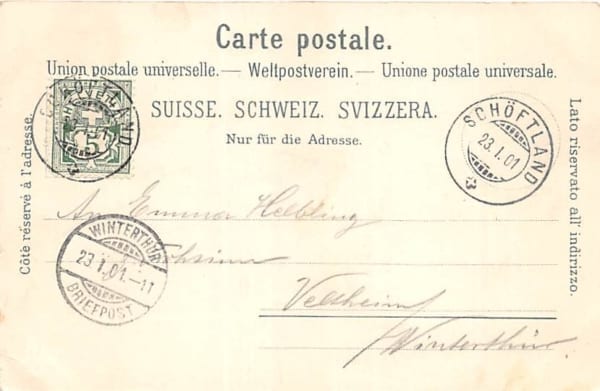 Carte postale.
Union postale universelle. — Weltpostverein. — Unione postale universale.
SUISSE. SCHWEIZ. SVIZZERA.
Nur für die Adresse.
Côté réservé à l'adresse.
Lato riservato all' indirizzo.
SCHÖFTLAND
5
SCHÖFTLAND
23.I.01
WINTERTHUR
23.I.01.–11
BRIEFPOST
An Emma Helbling
Veltheim
Winterthur